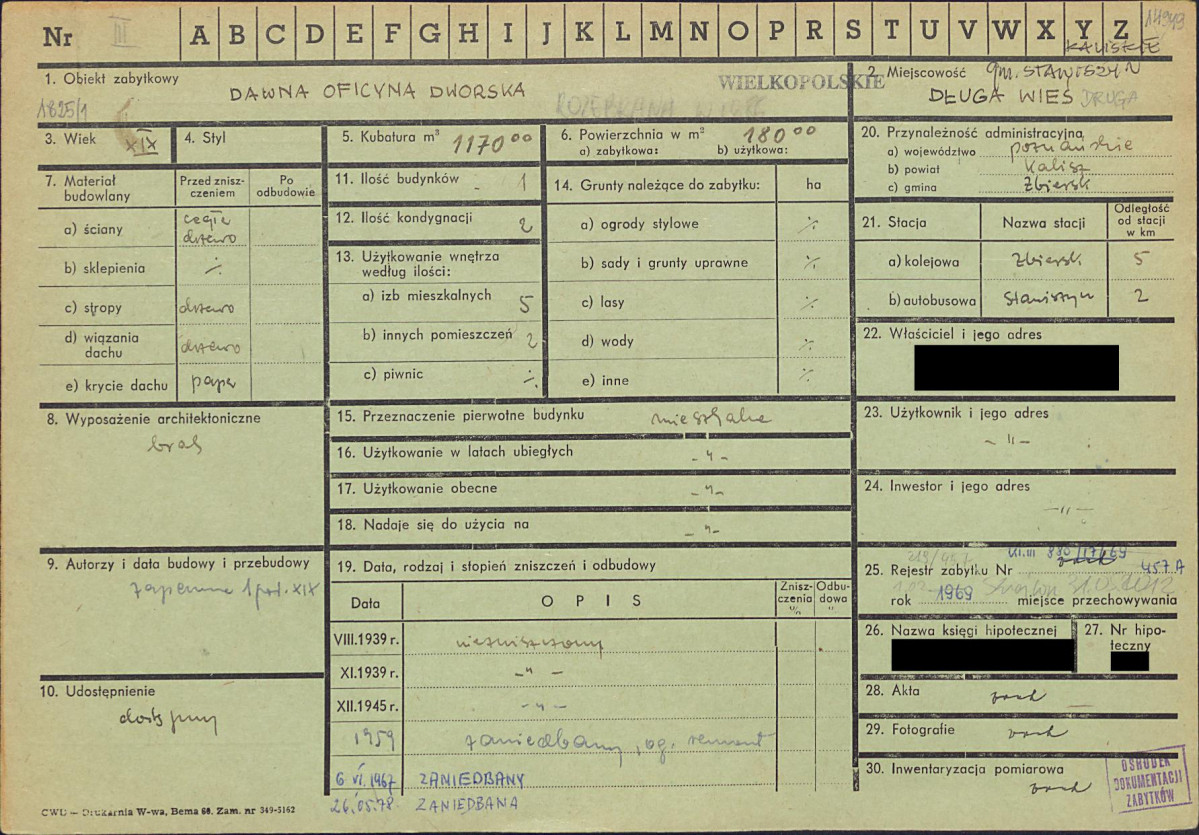 Nr III A B C D E F G H I J K L M N O P R S T U V W X Y Z 14949
KALISKIE
1. Obiekt zabytkowy
1825/1
DAWNA OFICYNA DWORSKA
WIELKOPOLSKIE
ROZEBRANA
2. Miejscowość gm. STAWISZYN
DŁUGA WIEŚ DRUGA
3. Wiek XIX
4. Styl
5. Kubatura m³ 1170 00
6. Powierzchnia w m² 180 00
a) zabytkowa: b) użytkowa:
7. Materiał budowlany
Przed zniszczeniem
Po odbudowie
a) ściany cegła drzewo
b) sklepienia ·/.
c) stropy drzewo
d) wiązania dachu drzewo
e) krycie dachu papa
8. Wyposażenie architektoniczne
brak
9. Autorzy i data budowy i przebudowy
zapewne 1 poł. XIX
10. Udostępnienie
dostępny
11. Ilość budynków - 1
12. Ilość kondygnacji 2
13. Użytkowanie wnętrza
według ilości:
a) izb mieszkalnych 5
b) innych pomieszczeń 2
c) piwnic ·/.
14. Grunty należące do zabytku: ha
a) ogrody stylowe ·/.
b) sady i grunty uprawne ·/.
c) lasy ·/.
d) wody ·/.
e) inne ·/.
15. Przeznaczenie pierwotne budynku mieszkalne
16. Użytkowanie w latach ubiegłych - " -
17. Użytkowanie obecne - " -
18. Nadaje się do użycia na - " -
19. Data, rodzaj i stopień zniszczeń i odbudowy
Data OPIS Zniszczenia % Odbudowa "
VIII.1939 r. niezniszczony
XI.1939 r. - " -
XII.1945 r. - " -
1959 zaniedbany, og. remont
6 VI. 1967 ZANIEDBANY
26.05.78 ZANIEDBANA
20. Przynależność administracyjna
a) województwo poznańskie
b) powiat Kalisz
c) gmina Zbiersk
21. Stacja Nazwa stacji Odległość od stacji w km
a) kolejowa Zbiersk 5
b) autobusowa Stawiszyn 2
22. Właściciel i jego adres
23. Użytkownik i jego adres
- " -
24. Inwestor i jego adres
- " -
25. Rejestr zabytku Nr brak 457A
kl.III 880/17/69
rok 1969 miejsce przechowywania
26. Nazwa księgi hipotecznej
27. Nr hipoteczny
28. Akta brak
29. Fotografie brak
30. Inwentaryzacja pomiarowa
brak
OŚRODEK
DOKUMENTACJI
ZABYTKÓW
CWD — Drukarnia W-wa, Bema 60. Zam. nr 349-5162